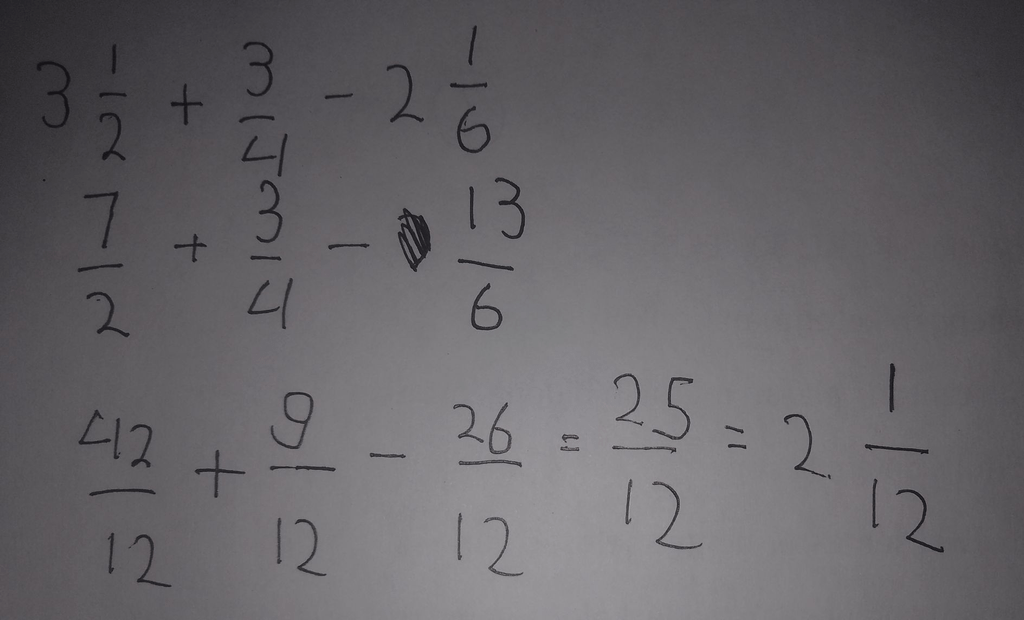 3 1/2 + 3/4 - 2 1/6
7/2 + 3/4 - 13/6
42/12 + 9/12 - 26/12 = 25/12 = 2 1/12